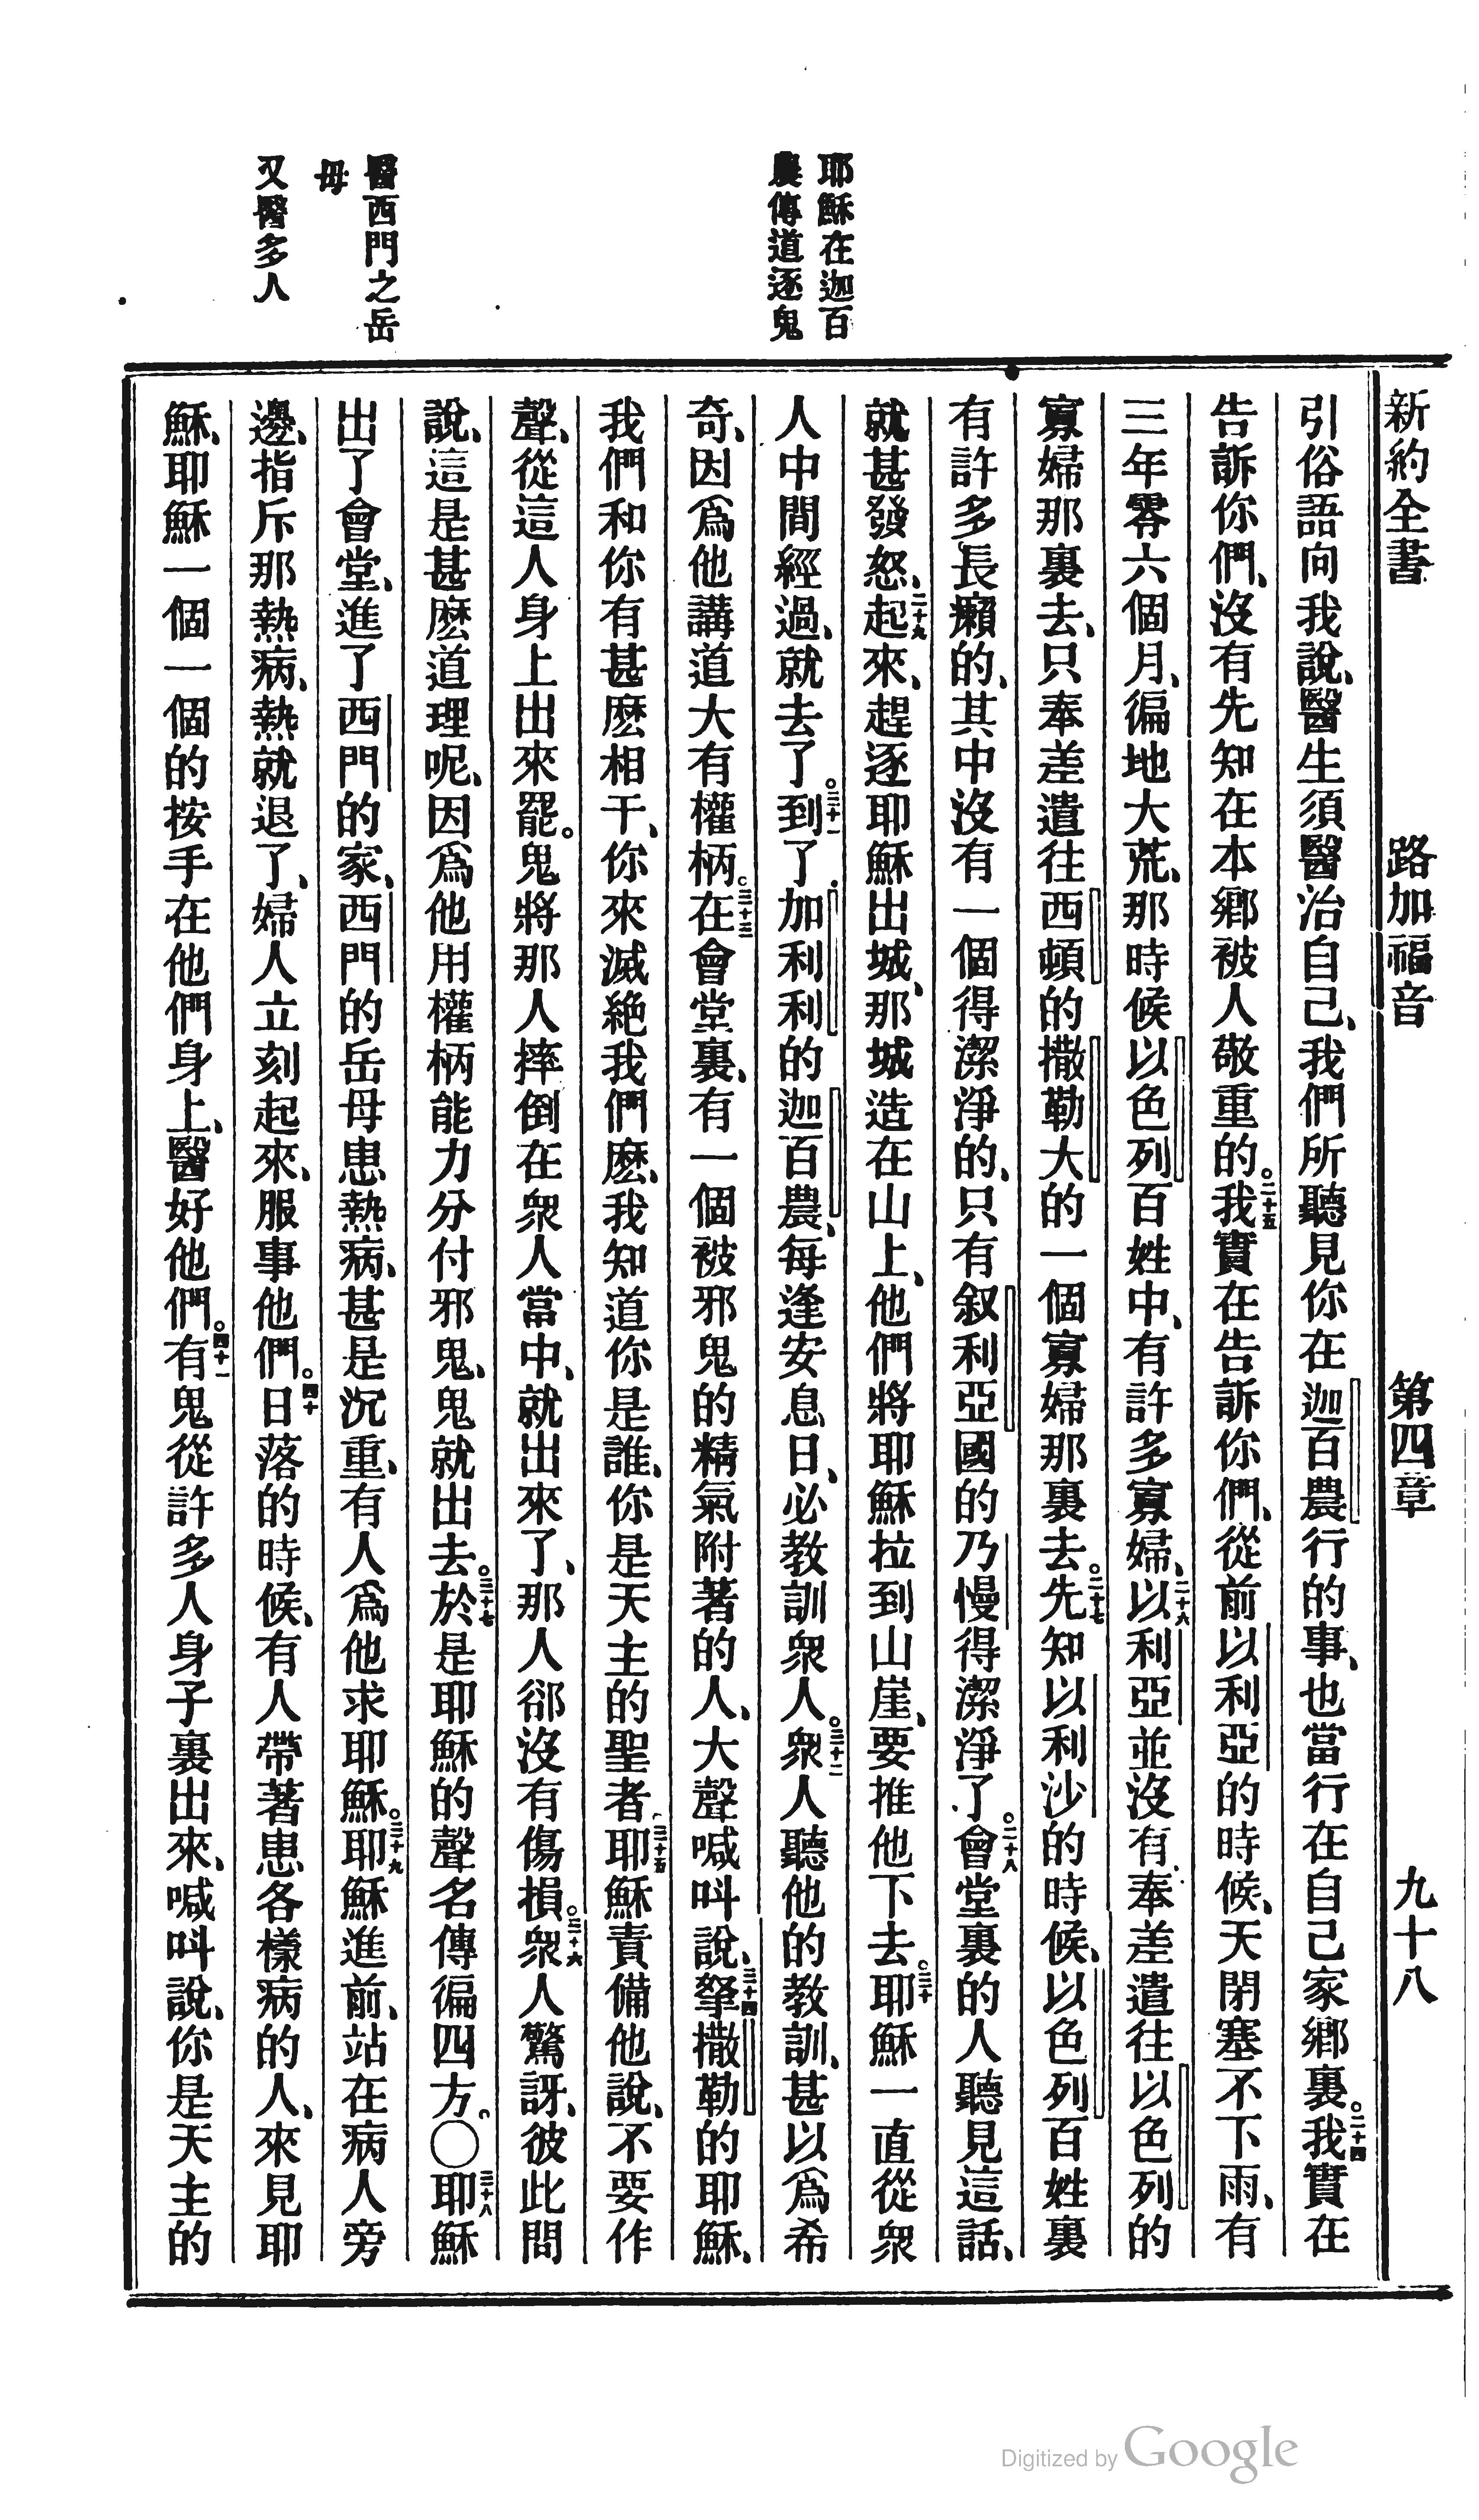 新約全書 路加福音 第四章 九十八
耶穌在迦百
農傳道逐鬼
醫西門之岳
母
又醫多人
引俗語向我說、醫生須醫治自己、我們所聽見你在迦百農行的事、也當行在自己家鄉裏。二十四我實在
告訴你們、沒有先知在本鄉被人敬重的。二十五我實在告訴你們、從前以利亞的時候、天閉塞不下雨、有
三年零六個月、徧地大荒、那時候以色列百姓中、有許多寡婦、二十六以利亞並沒有奉差遣往以色列的
寡婦那裏去、只奉差遣往西頓的撒勒大的一個寡婦那裏去。二十七先知以利沙的時候、以色列百姓裏
有許多長癩的、其中沒有一個得潔淨的、只有叙利亞國的乃慢得潔淨了。二十八會堂裏的人聽見這話、
就甚發怒、二十九起來、趕逐耶穌出城、那城造在山上、他們將耶穌拉到山崖、要推他下去。三十耶穌一直從衆
人中間經過、就去了。三十一到了加利利的迦百農、每逢安息日、必教訓衆人。三十二衆人聽他的教訓、甚以爲希
奇、因爲他講道大有權柄。三十三在會堂裏、有一個被邪鬼的精氣附著的人、大聲喊叫說、三十四拏撒勒的耶穌、
我們和你有甚麽相干、你來滅絕我們麽、我知道你是誰、你是天主的聖者。三十五耶穌責備他說、不要作
聲、從這人身上出來罷。鬼將那人摔倒在衆人當中、就出來了、那人郤沒有傷損。三十六衆人驚訝、彼此問
說、這是甚麽道理呢、因爲他用權柄能力分付邪鬼、鬼就出去。三十七於是耶穌的聲名傳徧四方。〇三十八耶穌
出了會堂、進了西門的家、西門的岳母患熱病、甚是沉重、有人爲他求耶穌。三十九耶穌進前、站在病人旁
邊、指斥那熱病、熱就退了、婦人立刻起來、服事他們。四十日落的時候、有人帶著患各樣病的人、來見耶
穌、耶穌一個一個的按手在他們身上、醫好他們。四十一有鬼從許多人身子裏出來、喊叫說、你是天主的
Digitized by Google